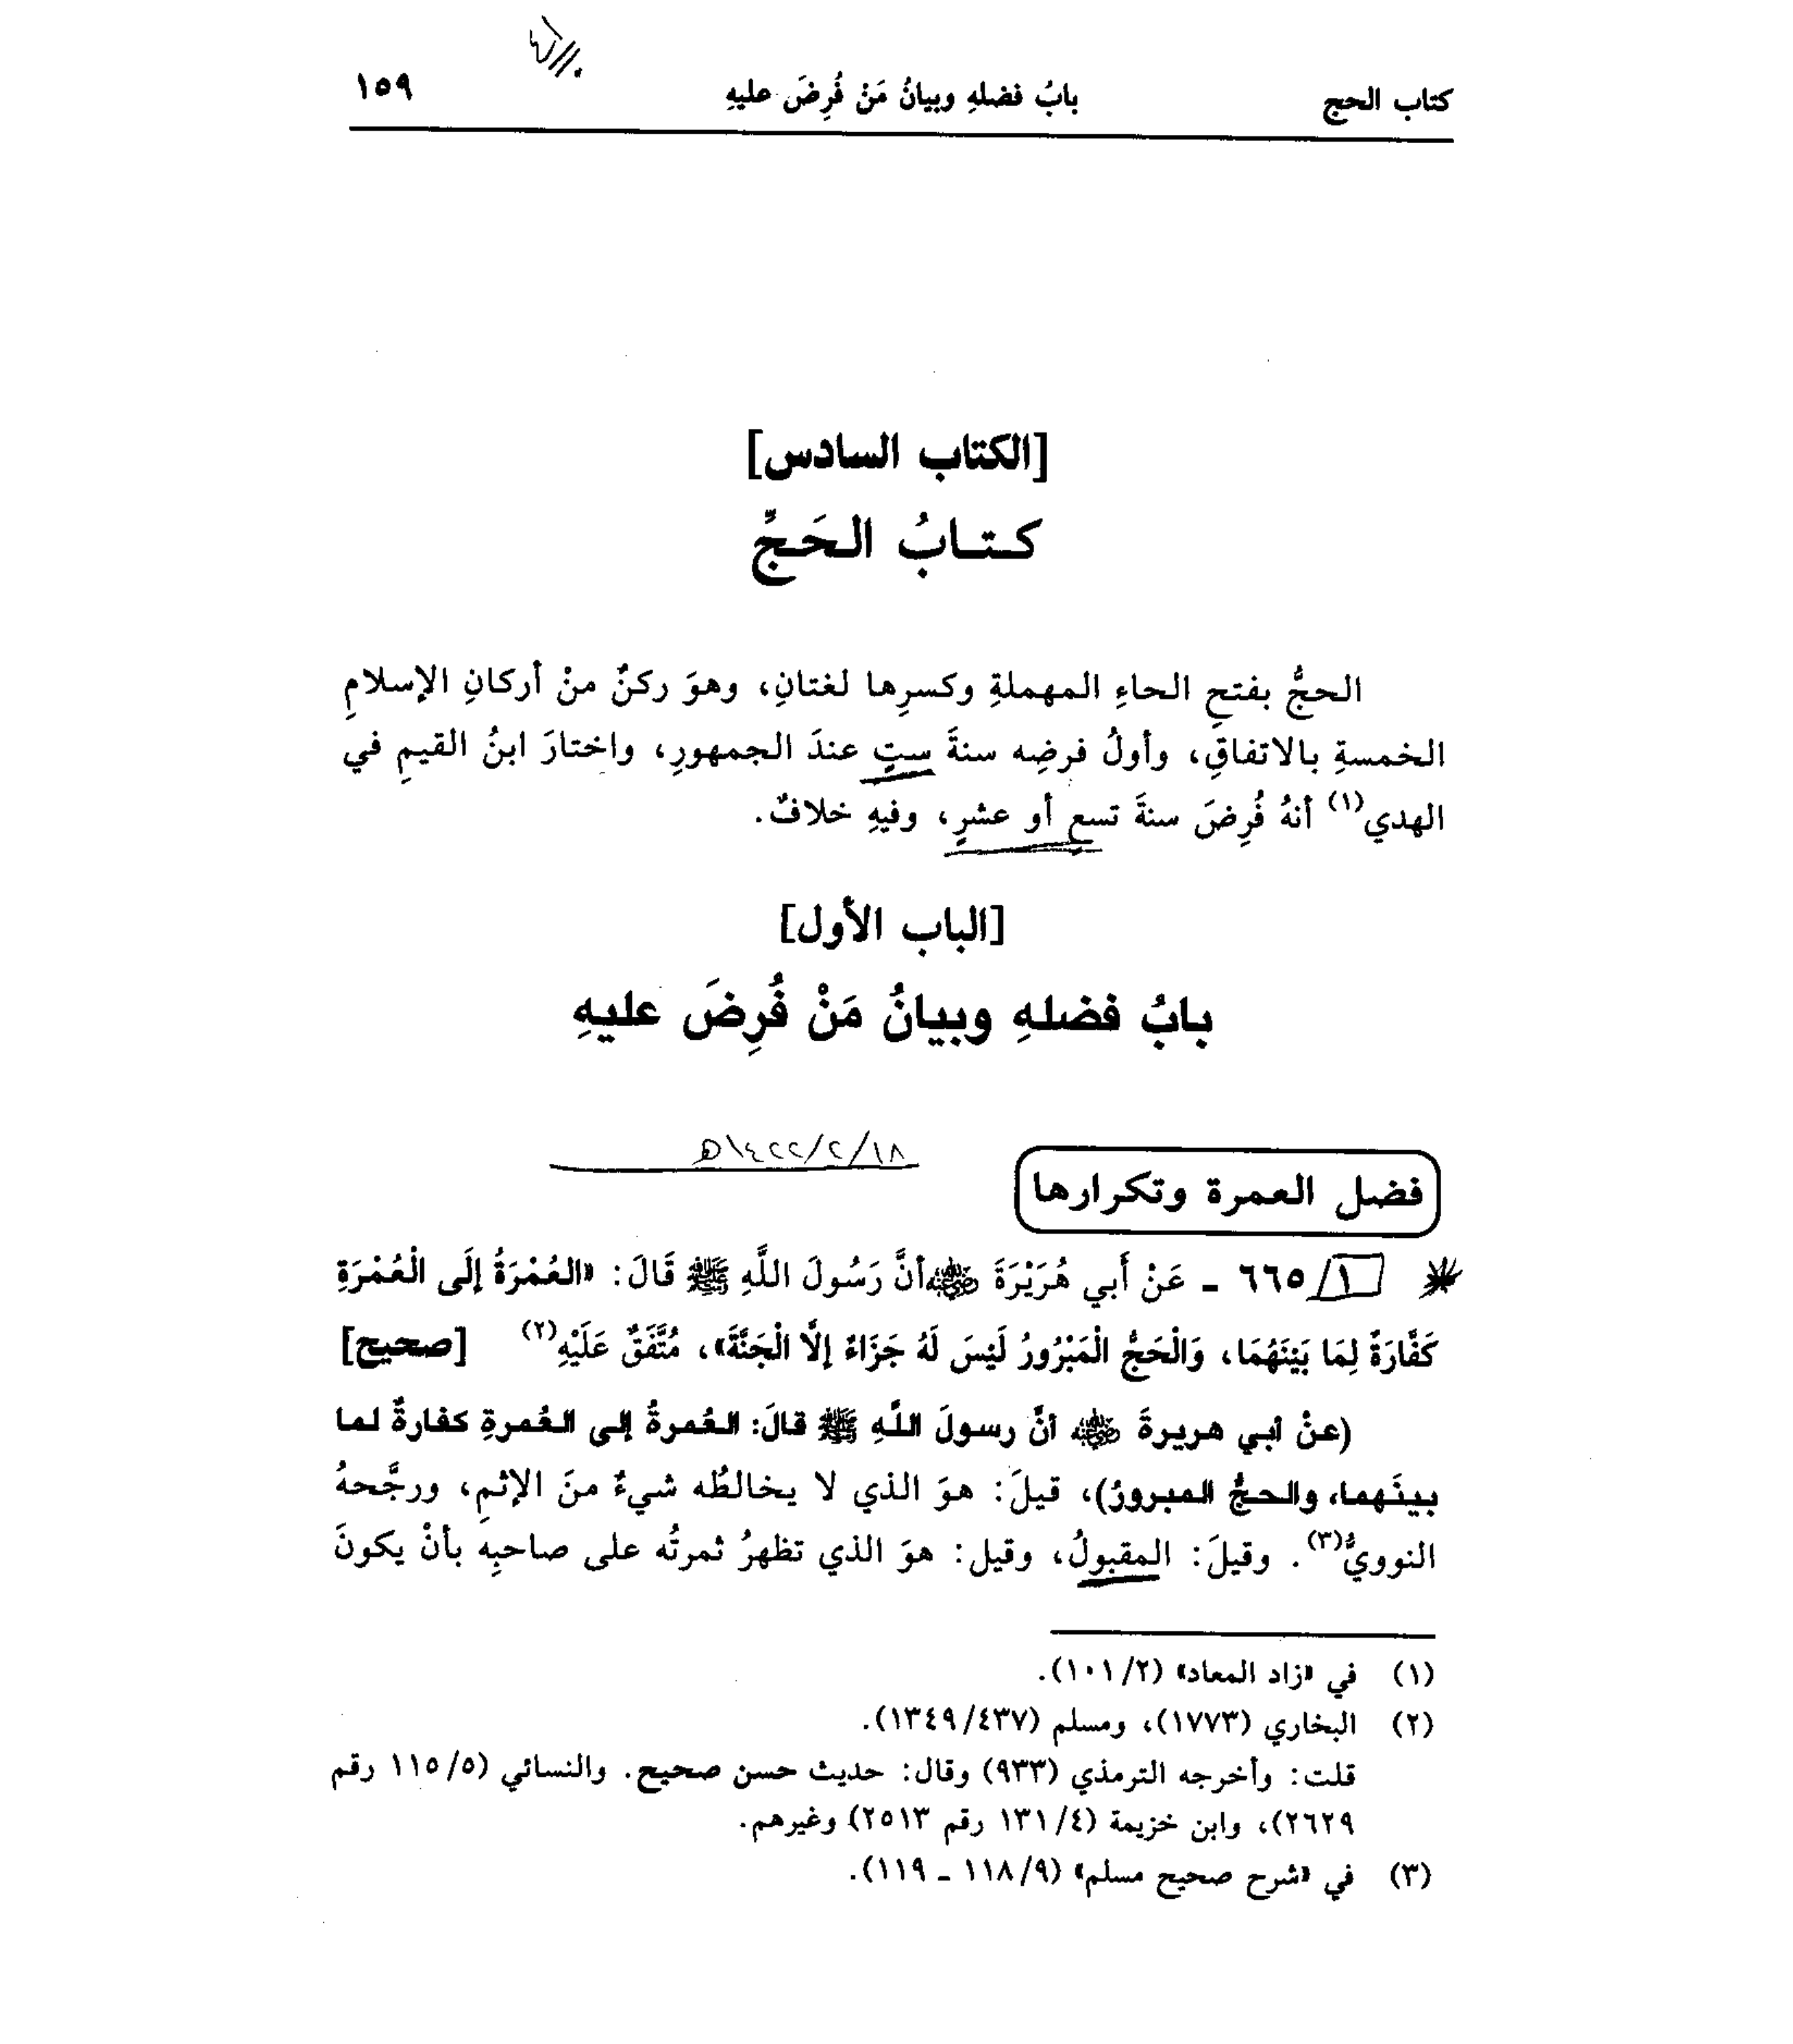 كتاب الحج بابُ فضلهِ وبيانُ مَنْ فُرِضَ عليهِ ١٥٩
[الكتاب السادس]
كتابُ الحَجِّ
الحجُّ بفتحِ الحاءِ المهملةِ وكسرِها لغتانِ، وهوَ ركنٌ منْ أركانِ الإسلامِ
الخمسةِ بالاتفاقِ، وأولُ فرضِه سنةَ ستٍ عندَ الجمهورِ، واختارَ ابنُ القيمِ في
الهدي(١) أنهُ فُرِضَ سنةَ تسعٍ أو عشرٍ، وفيهِ خلافٌ.
[الباب الأول]
بابُ فضلهِ وبيانُ مَنْ فُرِضَ عليهِ
١٨/٢/١٤٢٢ه
فضل العمرة وتكرارها
١/٦٦٥ - عَنْ أَبي هُرَيْرَةَ ﵁ أنَّ رَسُولَ اللَّهِ ﷺ قَالَ: «العُمْرَةُ إلَى الْعُمْرَةِ
كَفَّارَةٌ لِمَا بَيْنَهُمَا، وَالْحَجُّ الْمَبْرُورُ لَيْسَ لَهُ جَزَاءٌ إلَّا الْجَنَّةَ»، مُتَّفَقٌ عَلَيْهِ(٢) [صحيح]
(عنْ أبي هريرةَ ﵁ أنَّ رسولَ اللَّهِ ﷺ قالَ: العُمرةُ إلى العُمرةِ كفارةٌ لما
بينَهما، والحجُّ المبرورُ)، قيلَ: هوَ الذي لا يخالطُه شيءٌ منَ الإثمِ، ورجَّحهُ
النوويُّ(٣). وقيلَ: المقبولُ، وقيل: هوَ الذي تظهرُ ثمرتُه على صاحبِهِ بأنْ يكونَ
(١) في «زاد المعاد» (٢/١٠١).
(٢) البخاري (١٧٧٣)، ومسلم (١٣٤٩/٤٣٧).
قلت: وأخرجه الترمذي (٩٣٣) وقال: حديث حسن صحيح. والنسائي (٥/١١٥ رقم
٢٦٢٩)، وابن خزيمة (٤/١٣١ رقم ٢٥١٣) وغيرهم.
(٣) في «شرح صحيح مسلم» (٩/١١٨ - ١١٩).